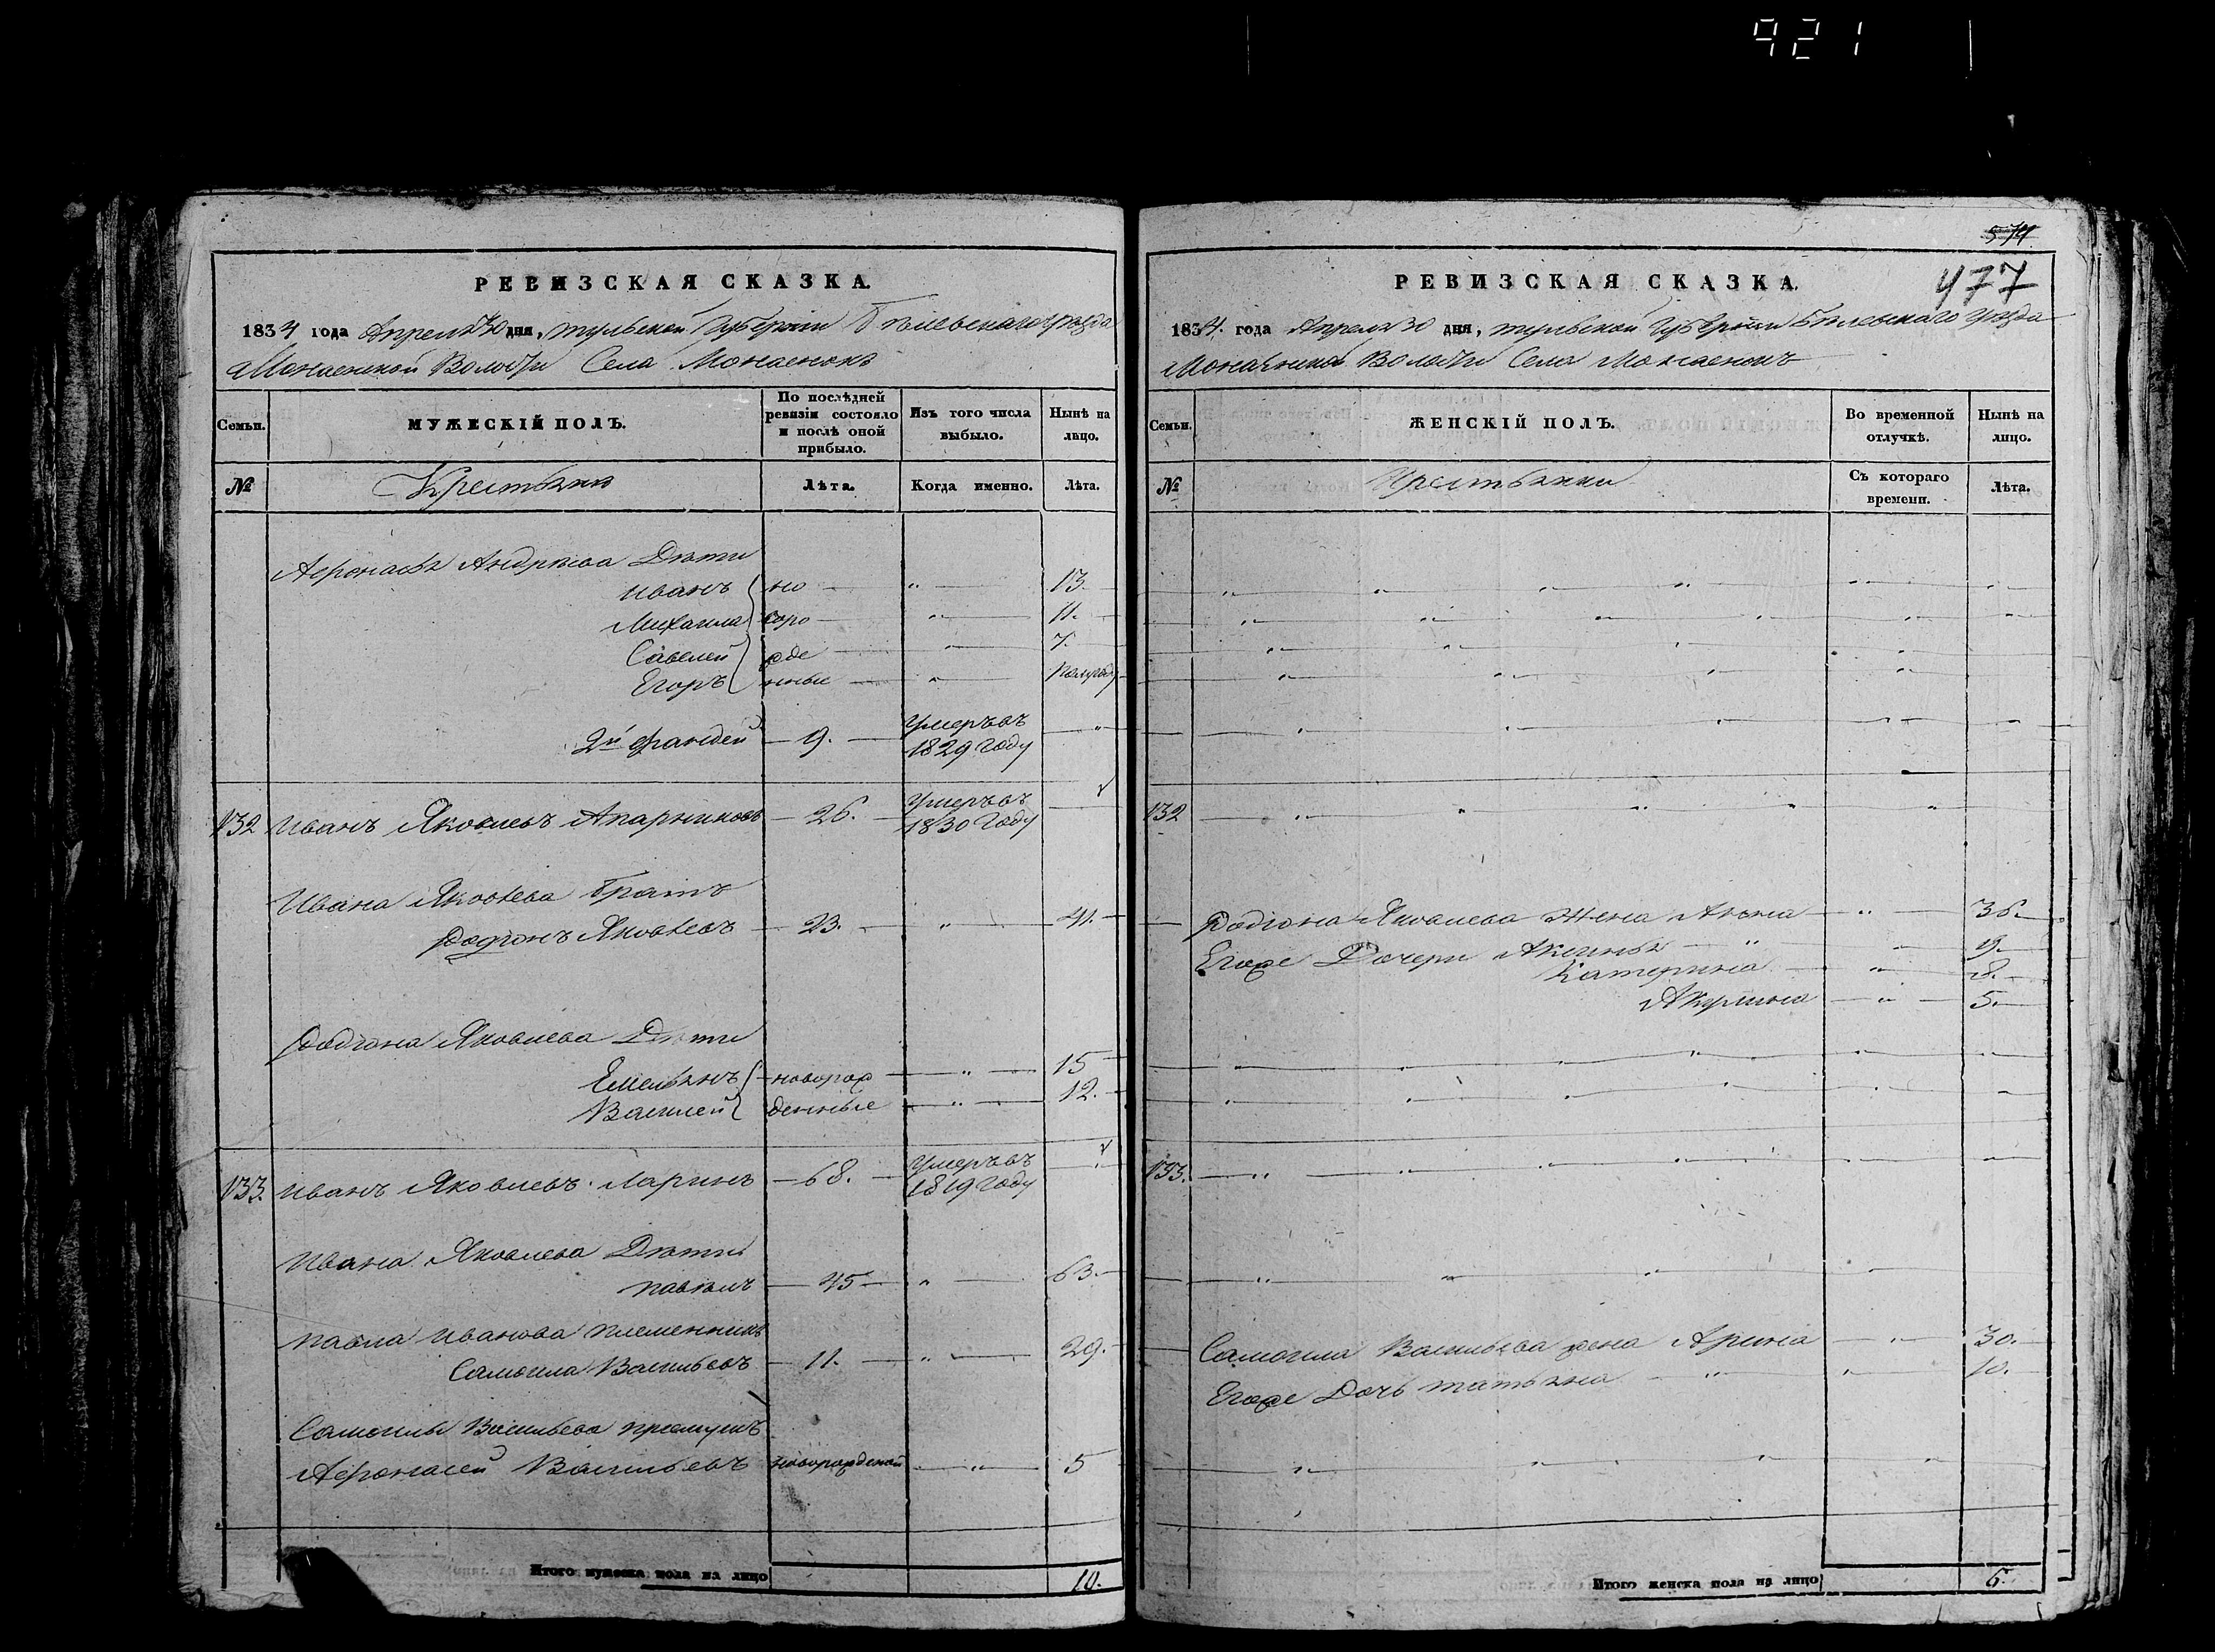 921
РЕВИЗСКАЯ СКАЗКА.
1834 года Апреля 30 дня, Тульской Губернии Белевскаго уезда
Монаенской Волости Села Монаенокъ
Семьи.
МУЖЕСКІЙ ПОЛЪ.
По послѣдней ревизіи состояло и послѣ оной прибыло.
Изъ того числа выбыло.
Нынѣ на лицо.
№
Крестьяне
Лѣта.
Когда именно.
Лѣта.
Афонасья Андреева Дети
Иванъ но " 13.
Михаила воро " 11.
Савелей жде " 7.
Егоръ нные " полугоду
2й Фандей 9. умеръ въ 1829 году "
132 Иванъ Яковлевъ Апарников 26. умеръ въ 1830 году
Ивана Яковлева братъ
Родіонъ Яковлевъ 23. " 41.
Родіона Яковлева Дети
Емельянъ новорож " 15
Василей денные " 12.
133. Иванъ Яковлевъ Ларинъ 68. умеръ въ 1819 году "
Ивана Яковлева Дети
Павелъ 45 " 63.
Павла Иванова племенникъ
Самоила Васильевъ 11. " 29.
Самоилы Васильева приемышъ
Афонасей Васильевъ новорожденой " 5
Итого мужеска пола на лицо 10.
477
РЕВИЗСКАЯ СКАЗКА.
1834. года Апреля 30 дня, Тульской Губернии Белевскаго уезда
Монаенской Волости Села Монаенокъ
Семьи.
ЖЕНСКІЙ ПОЛЪ.
Во временной отлучкѣ.
Нынѣ на лицо.
№
Крестьянки
Съ котораго времени.
Лѣта.
132
Родіона Яковлева жена Анна " 36.
Егоже Дочери Аксинья " 9.
Катерина " 8.
Акулина " 5.
133.
Самоила Васильева жена Арина " 30.
Егоже Дочь Татьяна " 10.
Итого женска пола на лицо 6.